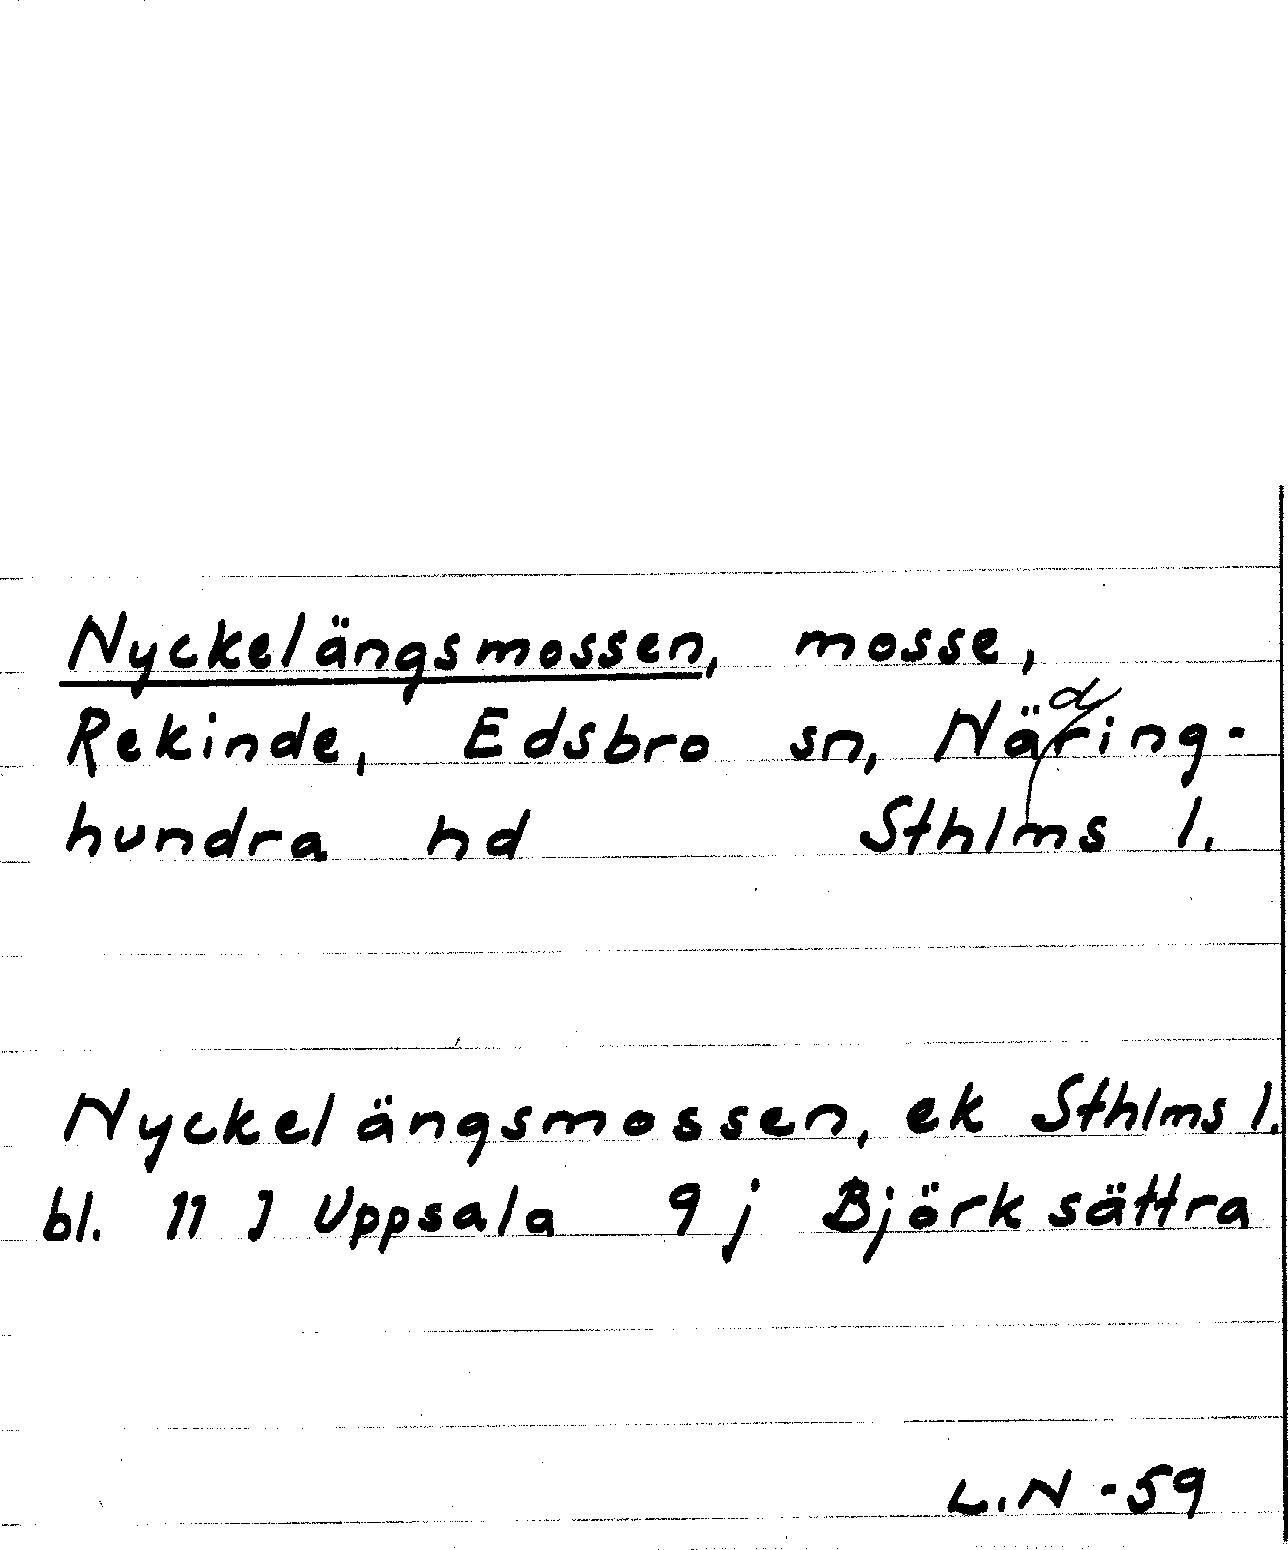 Nyckelängsmossen, mosse,
Rekinde, Edsbro sn, Närding-
hundra hd Sthlms l.
Nyckelängsmossen, ek Sthlms l.
bl. 11 J Uppsala 9 j Björksättra
L.N -59